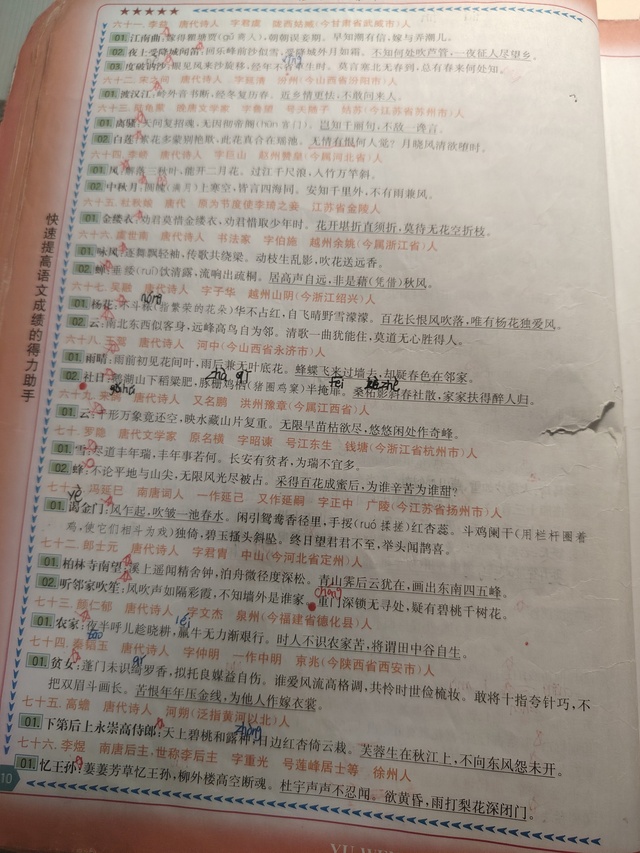 ★★★★★
六十一. 李益 唐代诗人 字君虞 陇西姑臧(今甘肃省武威市)人
01. 江南曲: 嫁得瞿塘贾(gǔ商人), 朝朝误妾期。早知潮有信, 嫁与弄潮儿。
02. 夜上受降城闻笛: 回乐峰前沙似雪, 受降城外月如霜。不知何处吹芦管, 一夜征人尽望乡。
03. 度破讷沙: 眼见风来沙旋移, 经年不省草生时。莫言塞北无春到, 总有春来何处知。
六十二. 宋之问 唐代诗人 字延清 汾州(今山西省汾阳市)人
01. 渡汉江: 岭外音书断, 经冬复历春。近乡情更怯, 不敢问来人。
六十三. 陆龟蒙 晚唐文学家 字鲁望 号天随子 姑苏(今江苏省苏州市)人
01. 离骚: 天问复招魂, 无因彻帝阍(hūn宫门)。岂知千丽句, 不敌一谗言。
02. 白莲: 素花多蒙别艳欺, 此花真合在瑶池。无情有恨何人觉? 月晓风清欲堕时。
六十四. 李峤 唐代诗人 字巨山 赵州赞皇(今属河北省)人
01. 风: 解落三秋叶, 能开二月花。过江千尺浪, 入竹万竿斜。
02. 中秋月: 圆魄(满月)上寒空, 皆言四海同。安知千里外, 不有雨兼风。
六十五. 杜秋娘 唐代 原为节度使李锜之妾 江苏省金陵人
01. 金缕衣: 劝君莫惜金缕衣, 劝君惜取少年时。花开堪折直须折, 莫待无花空折枝。
六十六. 虞世南 唐代 书法家 字伯施 越州余姚(今属浙江省)人
01. 咏风: 逐舞飘轻袖, 传歌共绕梁。动枝生乱影, 吹花送远香。
02. 蝉: 垂緌(ruí)饮清露, 流响出疏桐。居高声自远, 非是藉(凭借)秋风。
六十七. 吴融 唐代诗人 字子华 越州山阴(今浙江绍兴)人
01. 杨花: 不斗秾(指繁荣的花朵)华不占红, 自飞晴野雪濛濛。百花长恨风吹落, 唯有杨花独爱风。
02. 云: 南北东西似客身, 远峰高鸟自为邻。清歌一曲犹能住, 莫道无心胜得人。
六十八. 王驾 唐代诗人 河中(今山西省永济市)人
01. 雨晴: 雨前初见花间叶, 雨后兼无叶底花。蜂蝶飞来过墙去, 却疑春色在邻家。
02. 社日: 鹅湖山下稻粱肥, 豚栅鸡栖(猪圈鸡窠)半掩扉。桑柘影斜春社散, 家家扶得醉人归。
六十九. 来鹄 唐代诗人 又名鹏 洪州豫章(今属江西省)人
01. 云: 千形万象竟还空, 映水藏山片复重。无限旱苗枯欲尽, 悠悠闲处作奇峰。
七十. 罗隐 唐代文学家 原名横 字昭谏 号江东生 钱塘(今浙江省杭州市)人
01. 雪: 尽道丰年瑞, 丰年事若何。长安有贫者, 为瑞不宜多。
02. 蜂: 不论平地与山尖, 无限风光尽被占。采得百花成蜜后, 为谁辛苦为谁甜?
七十一. 冯延巳 南唐词人 一作延己 又作延嗣 字正中 广陵(今江苏省扬州市)人
01. 谒金门: 风乍起, 吹皱一池春水。闲引鸳鸯香径里, 手挼(ruó揉搓)红杏蕊。斗鸡阑干(用栏杆圈着
鸡, 使它们相斗为戏)独倚, 碧玉搔头斜坠。终日望君君不至, 举头闻鹊喜。
七十二. 郎士元 唐代诗人 字君胄 中山(今河北省定州)人
01. 柏林寺南望: 溪上遥闻精舍钟, 泊舟微径度深松。青山霁后云犹在, 画出东南四五峰。
02. 听邻家吹笙: 风吹声如隔彩霞, 不知墙外是谁家。重门深锁无寻处, 疑有碧桃千树花。
七十三. 颜仁郁 唐代诗人 字文杰 泉州(今福建省德化县)人
01. 农家: 夜半呼儿趁晓耕, 羸牛无力渐艰行。时人不识农家苦, 将谓田中谷自生。
七十四. 秦韬玉 唐代诗人 字仲明 一作中明 京兆(今陕西省西安市)人
01. 贫女: 蓬门未识绮罗香, 拟托良媒益自伤。谁爱风流高格调, 共怜时世俭梳妆。敢将十指夸针巧, 不
把双眉斗画长。苦恨年年压金线, 为他人作嫁衣裳。
七十五. 高蟾 唐代诗人 河朔(泛指黄河以北)人
01. 下第后上永崇高侍郎: 天上碧桃和露种, 日边红杏倚云栽。芙蓉生在秋江上, 不向东风怨未开。
七十六. 李煜 南唐后主, 世称李后主 字重光 号莲峰居士等 徐州人
01. 忆王孙: 萋萋芳草忆王孙, 柳外楼高空断魂。杜宇声声不忍闻。欲黄昏, 雨打梨花深闭门。
快速提高语文成绩的得力助手
10